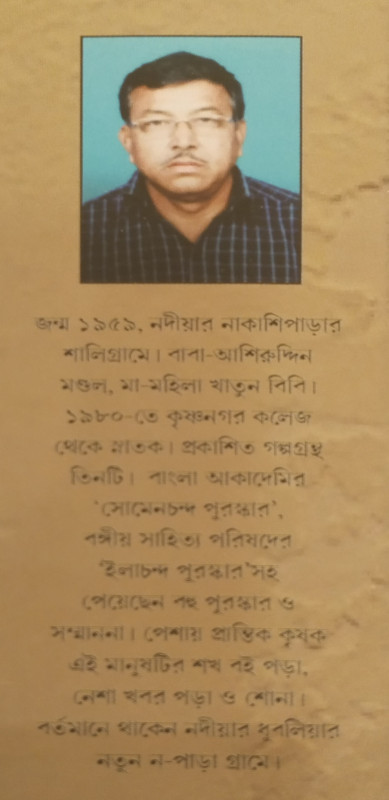 জন্ম ১৯৫৯, নদীয়ার নাকাশিপাড়ার
শালিগ্রামে। বাবা-আশিরুদ্দিন
মণ্ডল, মা-মহিলা খাতুন বিবি।
১৯৮০-তে কৃষ্ণনগর কলেজ
থেকে স্নাতক। প্রকাশিত গল্পগ্রন্থ
তিনটি। বাংলা আকাদেমির
‘সোমেনচন্দ পুরস্কার’,
বঙ্গীয় সাহিত্য পরিষদের
‘ইলাচন্দ পুরস্কার’সহ
পেয়েছেন বহু পুরস্কার ও
সম্মাননা। পেশায় প্রান্তিক কৃষক
এই মানুষটির শখ বই পড়া,
নেশা খবর পড়া ও শোনা।
বর্তমানে থাকেন নদীয়ার ধুবলিয়ার
নতুন ন-পাড়া গ্রামে।